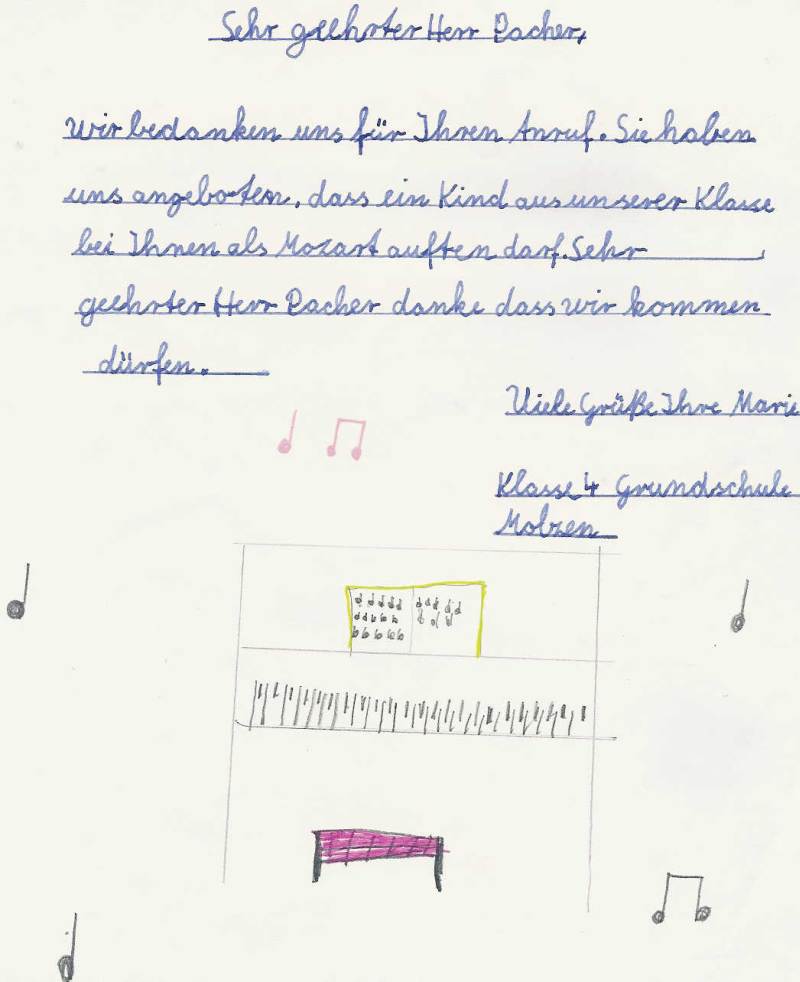 Sehr geehrter Herr Pacher,
wir bedanken uns für Ihren Anruf. Sie haben
uns angeboten, dass ein Kind aus unserer Klasse
bei Ihnen als Mozart auften darf. Sehr
geehrter Herr Pacher danke dass wir kommen
dürfen.
Viele Grüße Ihre Marie
Klasse 4 Grundschule
Molzen